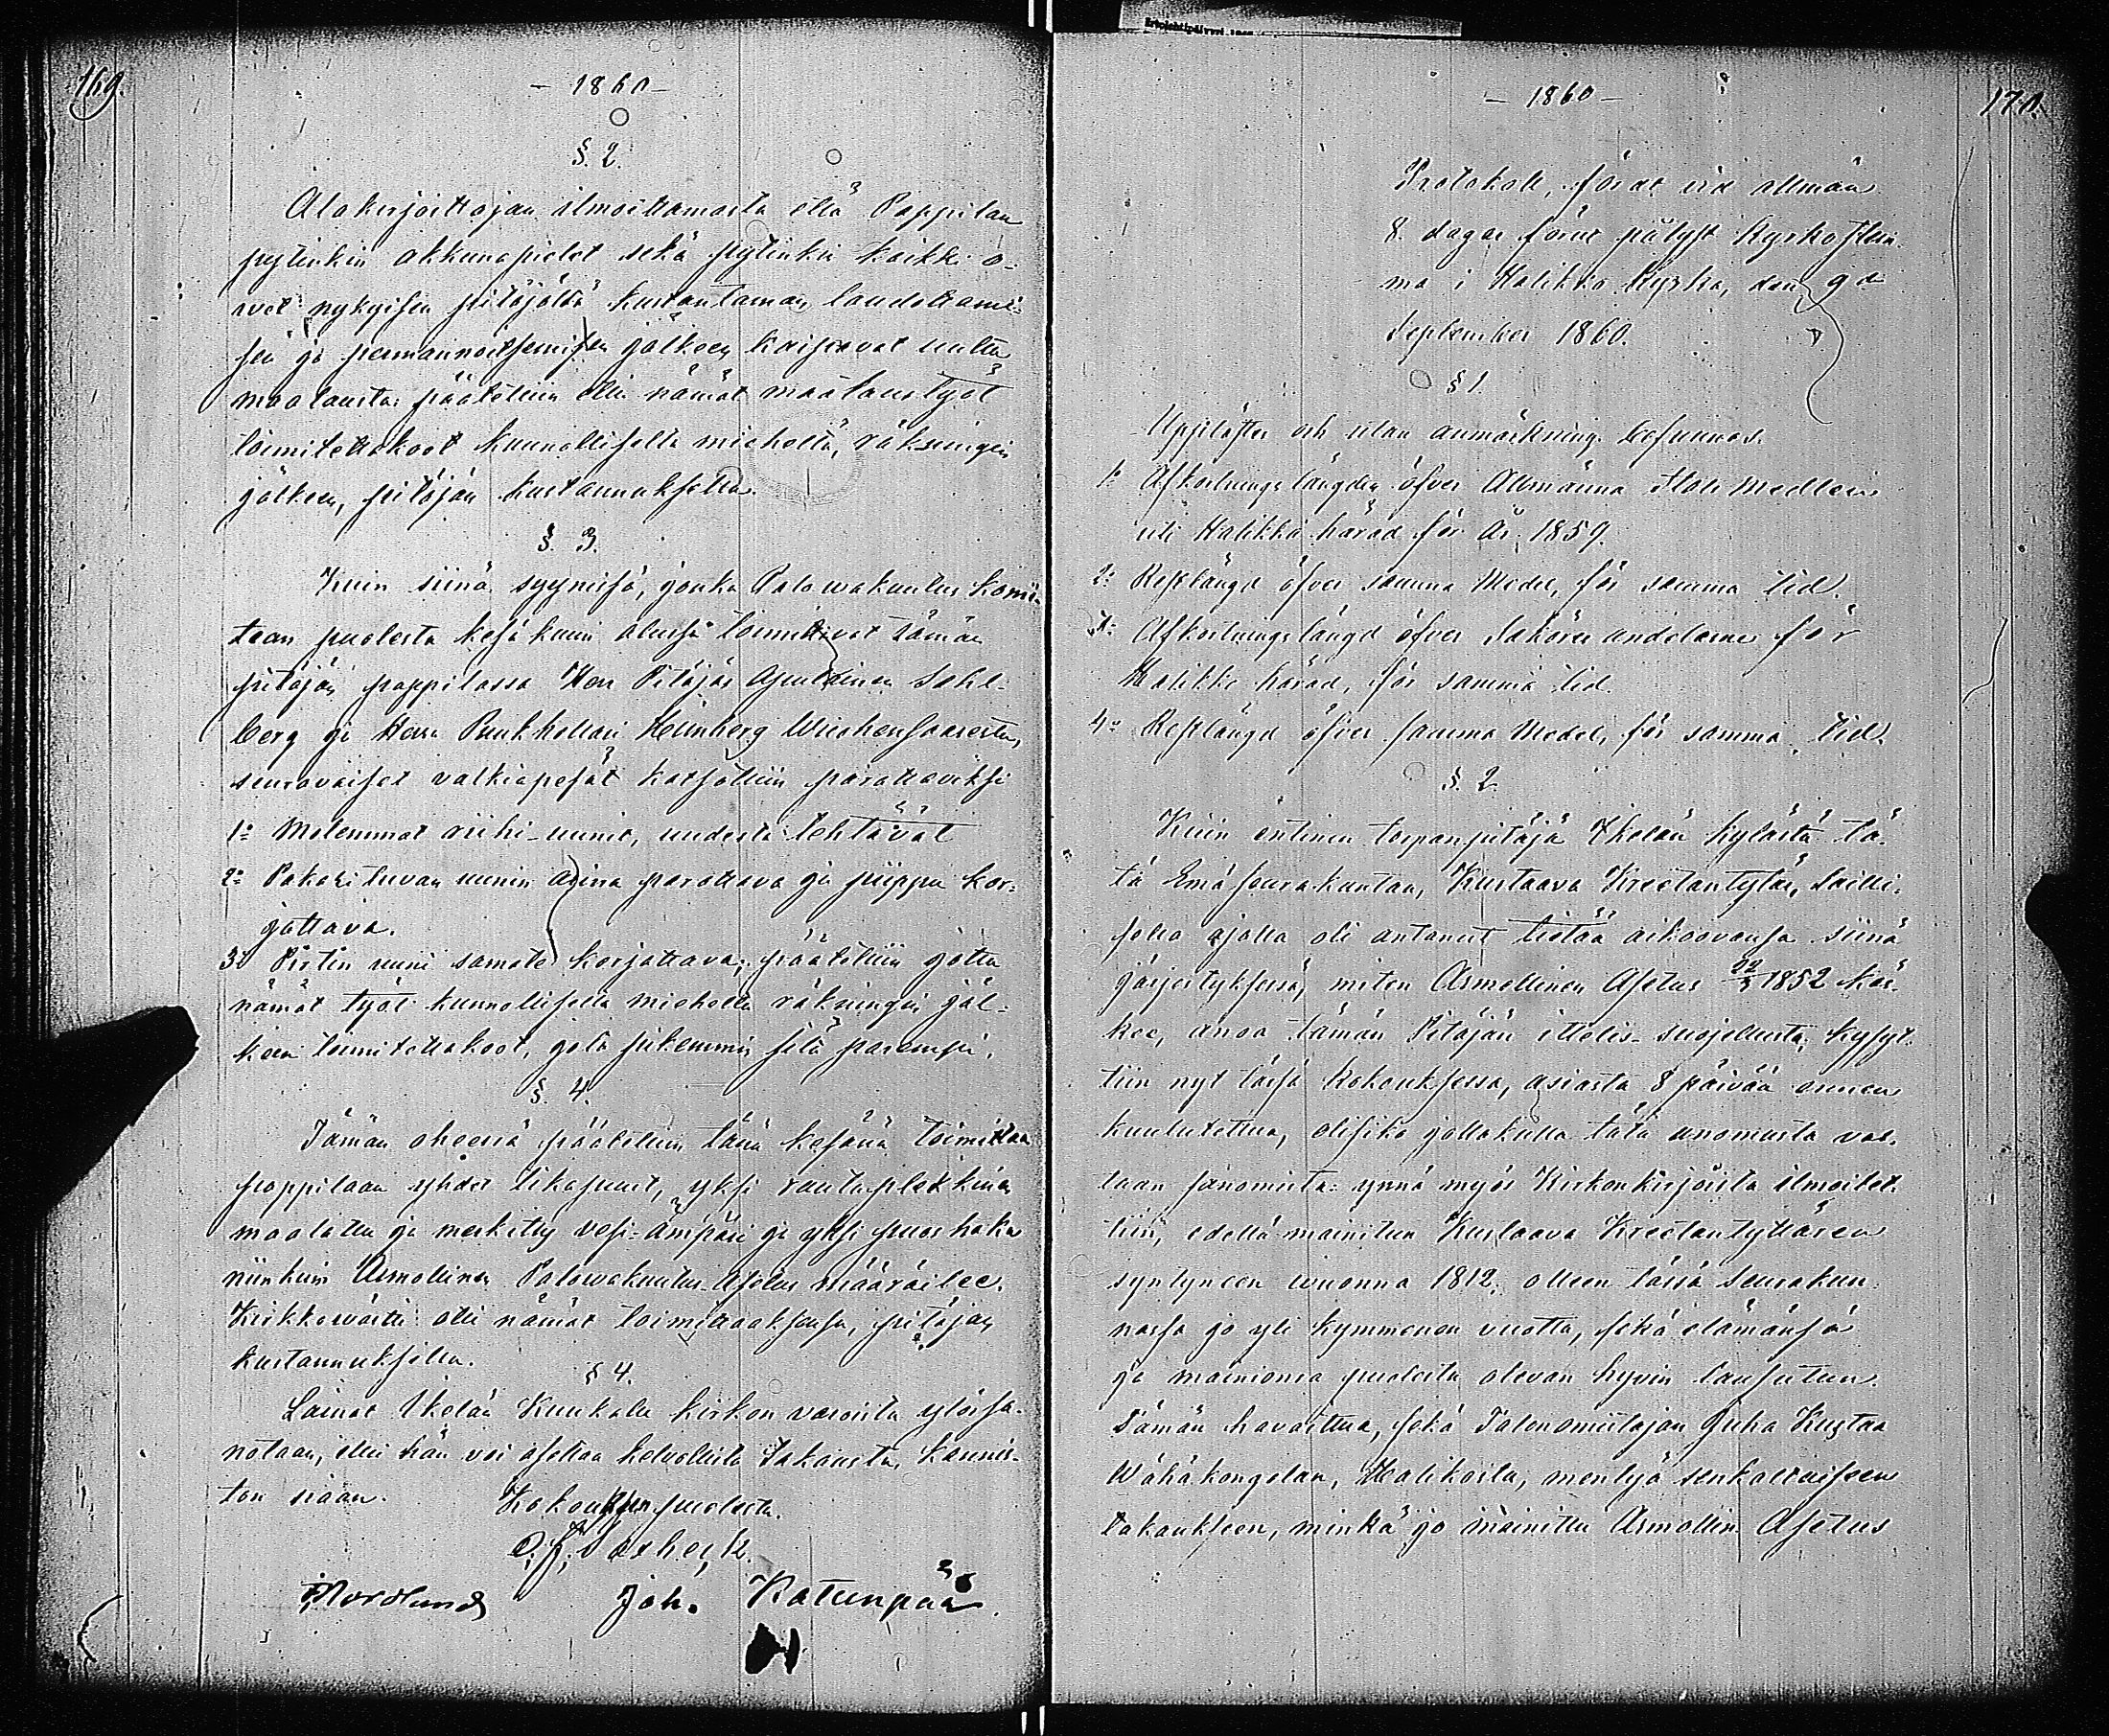 169.
- 1860 -
§. 2.
Alakirjoittajan ilmoittamasta että Pappilan
pytinkin akkunapielet sekä pytinkin kaikki o-
vet nykyisen pitäjältä kustantaman laudottami-
sen ja permannoitsemisen jälkeen kaipaavat uutta
maalausta: päätettiin että nämät maalaustyöt
toimitettakoot kunnollisella miehellä, räkningin
jälkeen, pitäjän kustannuksella.
§. 3.
Kuin siinä syynissä, jonka Palowakuutus Komi-
tean puolesta kesäkuun alussa toimittivat tämän
pitäjän pappilassa Herr Pitäjän Apulainen Sahl-
berg ja Herra Pruukhollari Heinberg Wiurhensaaresta,
seuraavaiset valkiapesät katsottiin parattaviksi
1:o Molemmat riihi-uunit, uudesta tehtävät
2:o Pakarituvan uunin arina parattava ja piippu kor-
jattava.
3:o Pirtin uuni samate korjattava; päätettiin jotta
nämät työt kunnollisella miehellä räkningin jäl-
keen toimitettakoot, jota pikemmin sitä parempi.
§. 4.
Tämän oheessa päätettiin tänä kesänä toimittaa
pappilaan yhdet tikapuut, yksi rautaplekkinen
maalattu ja merkitty vesi-ämpäri ja yksi puoshaka
niinkuin Armollinen Palowakuutus-Asetus määräilee.
Kirkkowärtti otti nämät toimittaaksensa, pitäjän
kustannuksella.
§ 4.
Lainat Ikelän Kuukala kirkon varoista ylössa-
notaan, ellei hän voi asettaa kelvollista takausta, Kannis-
ton siaan.
Kokouksen puolesta.
Nordlund Joh. Katunpää

1860 -
170.
Protokoll, fördt vid allmän
8. dagar förut pålyst Kyrkostäm-
ma i Halikko Kyrka, den 9 de
September 1860.
§ 1.
Upplästes och utan anmärkning befunnos.
1:o Afkortningslängden öfver Allmänna Stats Medlen
uti Halikko härad för År 1859.
2:o Restlängd öfver samma Medel, för samma tid.
3:o Afkortningslängd öfver Saköres andelarne för
Halikko härad, för samma tid.
4:o Restlängd öfver samma Medel, för samma tid.
§. 2.
Kuin entinen torpanpitäjä Ikelän kylästä tä-
tä Emäseurakuntaa, Kustaava Kreetantytär, lailli-
sella ajalla oli antanut tietää aikoovansa siinä
järjestyksessä, miten Armollinen Asetus 22/3 1852 käs-
kee, anoa tämän Pitäjän ittelis-suojellusta; kysyt-
tiin nyt tässä kokouksessa, asiasta 8 päivää ennen
kuulutettua, olisiko jollakulla tätä anomusta vas-
taan sanomista: ynnä myös Kirkonkirjoista ilmoitet-
tiin, edellä mainitun Kustaava Kreetantyttären
syntyneen wuonna 1812. olleen tässä Seurakun-
nassa jo yli kymmenen vuotta, sekä elämänsä
ja mainionsa puolesta olevan hyvin lausutun.
Tämän havaittua, sekä Talonomistajan Juha Kustaa
Wähäkongolan, Halikoita, mentyä senkaltaiseen
takaukseen, minkä jo mainittu Armollin. Asetus